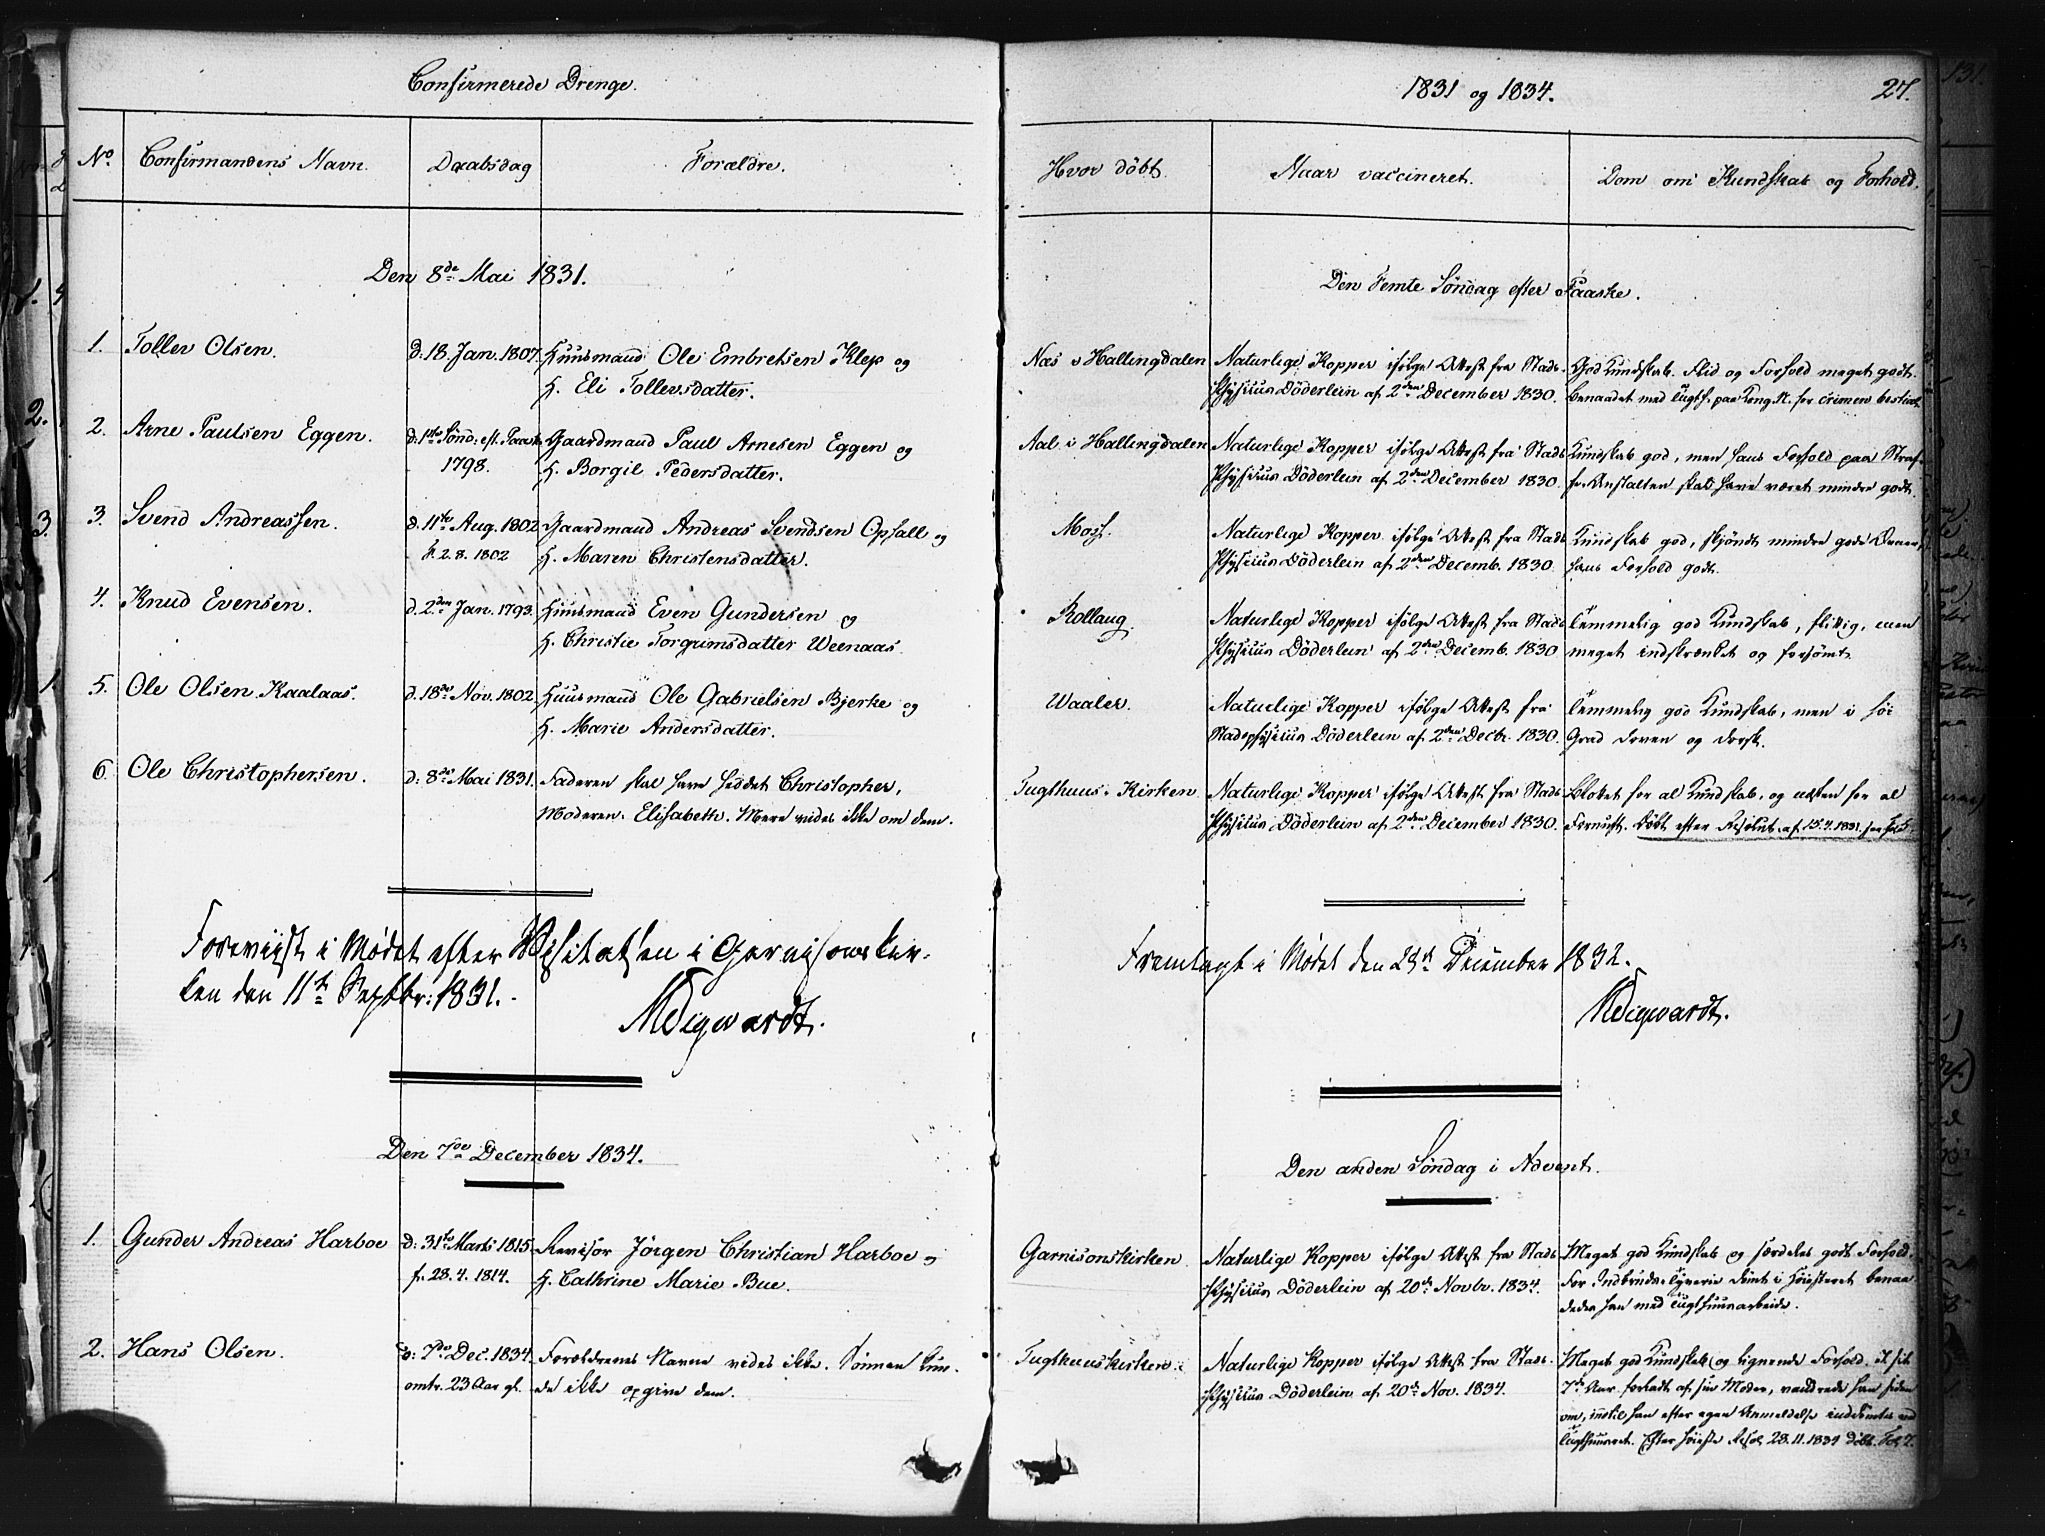 Confirmerede Drenge.
1831 og 1834.
27.
No. Confirmandens Navn. Daabsdag Forældre. Hvor döbt. Naar vaccineret. Dom om Kundskab og Forhold.
Den 8de Mai 1831.
Den Femte Söndag efter Paaske.
1. Tollev Olsen. d: 18. Jan. 1807. Huusmand Ole Embretsen Klep og Næs i Hallingdalen Naturlige Kopper ifölge Attest fra Stads- God Kundskab. Flid og Forhold meget godt.
H. Eli Tollevsdatter. Physicus Döderlein af 2den December 1830. Benaadet med Tugth. paa Kong. N. for crimen bestial.
2. Arne Paulsen Eggen. d: 1ste Sönd: eft. Paaske Gaardmand Paul Arnesen Eggen og Aal i Hallingdalen Naturlige Kopper ifölge Attest fra Stads Kundskab god, men hans Forhold paa Straf-
1798. H. Borgil Pedersdatter. Physicus Döderlein af 2den December 1830. fe-Anstalten skal have været mindre godt.
3. Svend Andreassen. d. 11te Aug. 1802 Gaardmand Andreas Svendsen Opsall og Moss. Naturlige Kopper ifölge Attest fra Stads Kundskab god, skjöndt mindre gode Evner,
f. 2. 8. 1802 H. Maren Christensdatter. Physicus Döderlein af 2den Decemb. 1830. hans Forhold godt.
4. Knud Evensen. d. 2den Jan. 1793. Huusmand Even Gundersen og Rollaug. Naturlige Kopper ifölge Attest fra Stads Temmelig god Kundskab, flittig, men
H. Christie Torgrimsdatter Weenaas. Physicus Döderlein af 2den Decemb. 1830 meget indskrænket og forsömt.
5. Ole Olsen Kaalaas. d. 18de Nov. 1802. Huusmand Ole Gabrielsen Bjerke og Waaler. Naturlige Kopper ifölge Attest fra Temmelig god Kundskab, men i höi
H. Marie Andersdatter. Stadsphysicus Döderlein af 2den Decbr. 1830. Grad doven og dorsk.
6. Ole Christophersen. d: 8de Mai 1831. Faderen skal have heddet Christopher, Tugthuus-Kirken Naturlige Kopper ifölge Attest fra Stads Blottet for al Kundskab, og næsten for al
Moderen Elisabeth. Mere vides ikke om dem. Physicus Döderlein af 2den December 1830. Fornuft. Döbt efter Resolut. af 15.4.1831.
Foreviist i Mødet efter Visitatsen i Garnisonskir-
ken den 11te Septbr: 1831.
Fremlagt i Mødet den December 1832.
Den 7de December 1834.
Den anden Söndag i Advent.
1. Gunder Andreas Harboe d: 31te Marts 1815. Revisor Jörgen Christian Harboe og Garnisonskirken. Naturlige Kopper ifölge Attest fra Stads Meget god Kundskab og særdeles godt Forhold.
f. 28. 4. 1814. H. Cathrine Marie Bue. Physicus Döderlein af 20de Novbr. 1834. For Indbruds-Tyverie dömt i Höiesteret benaa
dedes han med Tugthuusarbeide.
2. Hans Olsen. d: 7de Dec. 1834. Forældrenes Navne vides ikke. Sönnen kun- Tugthuuskirken. Naturlige Kopper ifölge Attest fra Stads- Meget god Kundskab og lignende Forhold. I sit
omtr. 23 Aar gl. de ikke opgive dem. Physicus Döderlein af 20de Nov. 1834. 7de Aar forladt af sin Moder, vandrede han siden
om, indtil han efter egen Anmeldelse inddömtes ved
Tugthuuset. Efter höieste Resol. 28.11.1834 döbt.